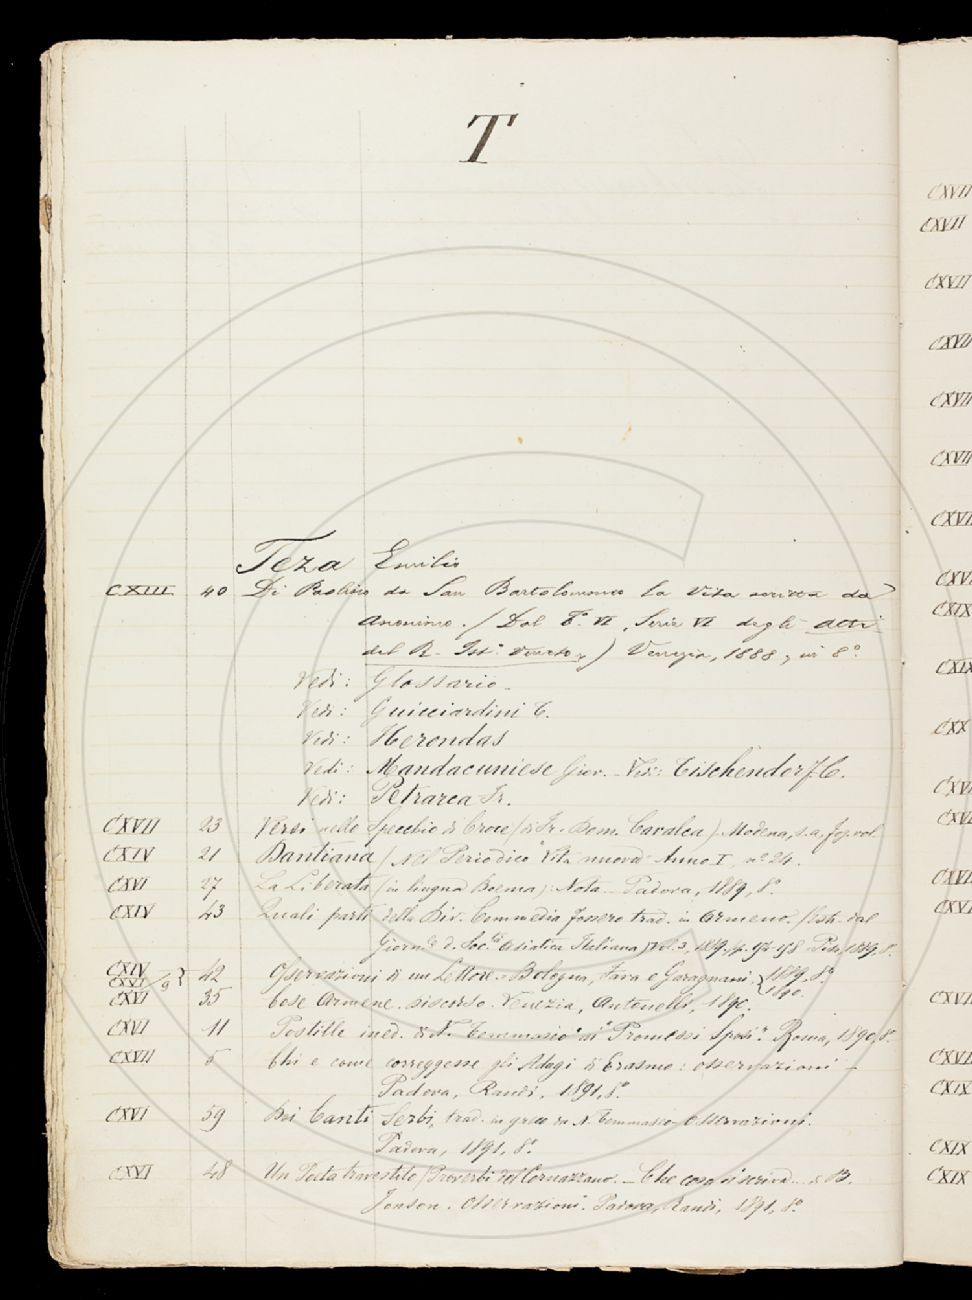 T
Teza Emilio
CXIII 40 Di Paolino da San Bartolommeo la Vita scritta da
anonimo. (Dal T.º VI, Serie VI degli atti
del R. Ist.º Veneto,) Venezia, 1888, in 8º.
Vedi: Glossario.
Vedi: Guicciardini C.
Vedi: Herondas
Vedi: Mandacuniese Giov. Vedi: Tischendorf C.
Vedi: Petrarca Fr.
CXVII 23 Versi nello Specchio di Croce (di Fr. Dom. Cavalca). Modena, s.a, fog. vol.
CXIV 21 Dantiana (nel Periodico "Vita nuova" Anno I, nº 24.
CXVI 27 La Liberata (in lingua Boema): Nota. Padova, 1889, 8º.
CXIV 43 Quali parti della Div. Commedia fossero trad. in Armeno. (Estr. dal
Giorn.e d. Soc.tà Asiatica Italiana) Vol. 3, 1889, p. 1889, 8.
CXIV 42 Osservazioni di un Lettore. Bologna, Fava e Garagnani, 1889, 8º.
CXVI/9 1890.
CXVI 35 Cose Armene. discorso. Venezia, Antonelli, 1890.
CXVI 11 Postille ined. di N. Tommaseo ai "Promessi Sposi". Roma, 1890, 8º.
CXVII 5 Chi e come correggesse gli Adagi di Erasmo: osservazioni –
Padova, Randi, 1891, 8º.
CXVI 59 Dei Canti Serbi, trad. in greco da N. Tommaseo – Osservazioni.
Padova, 1891, 8º.
CXVI 48 Un Poeta travestito (Proverbi del Cornazzano. – Che cosa si scriva B.
Jonson. Osservazioni. Padova, Randi, 1891, 8º.
CXVII
CXVII
CXVII
CXVII
CXVII
CXVII
CXIX
CXIX
CXX
CXIX
CXIX
CXIX